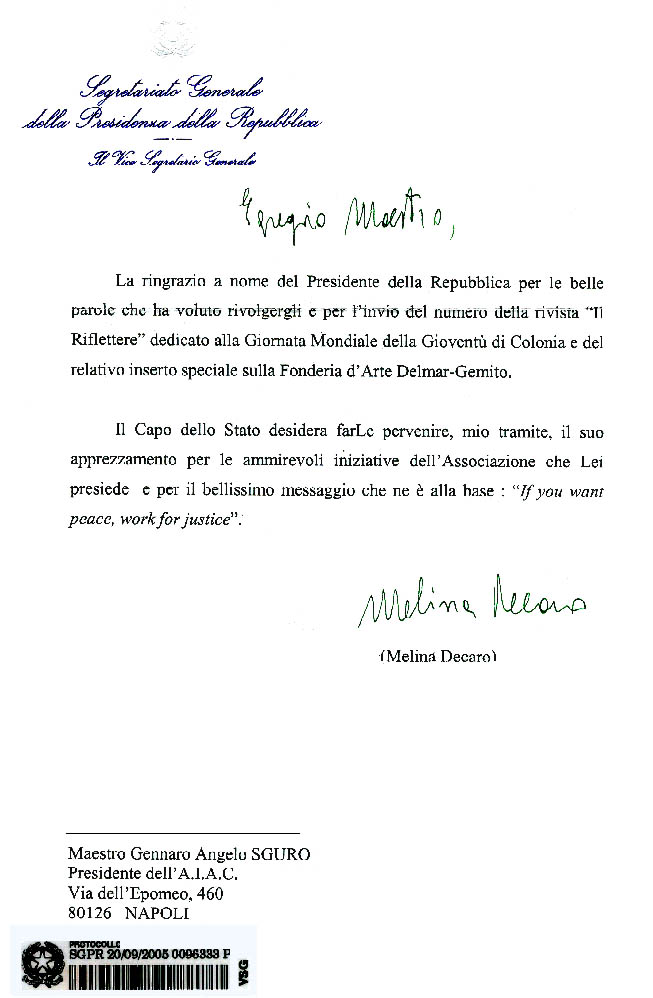 Segretariato Generale
della Presidenza della Repubblica
Il Vice Segretario Generale
Egregio Maestro,
La ringrazio a nome del Presidente della Repubblica per le belle
parole che ha voluto rivolgergli e per l'invio del numero della rivista "Il
Riflettere" dedicato alla Giornata Mondiale della Gioventù di Colonia e del
relativo inserto speciale sulla Fonderia d'Arte Delmar-Gemito.
Il Capo dello Stato desidera farLe pervenire, mio tramite, il suo
apprezzamento per le ammirevoli iniziative dell'Associazione che Lei
presiede e per il bellissimo messaggio che ne è alla base : "If you want
peace, work for justice".
Melina Decaro
(Melina Decaro)
Maestro Gennaro Angelo SGURO
Presidente dell'A.I.A.C.
Via dell'Epomeo, 460
80126 NAPOLI
PROTOCOLLO
SGPR 20/09/2005 0096333 P
VSG